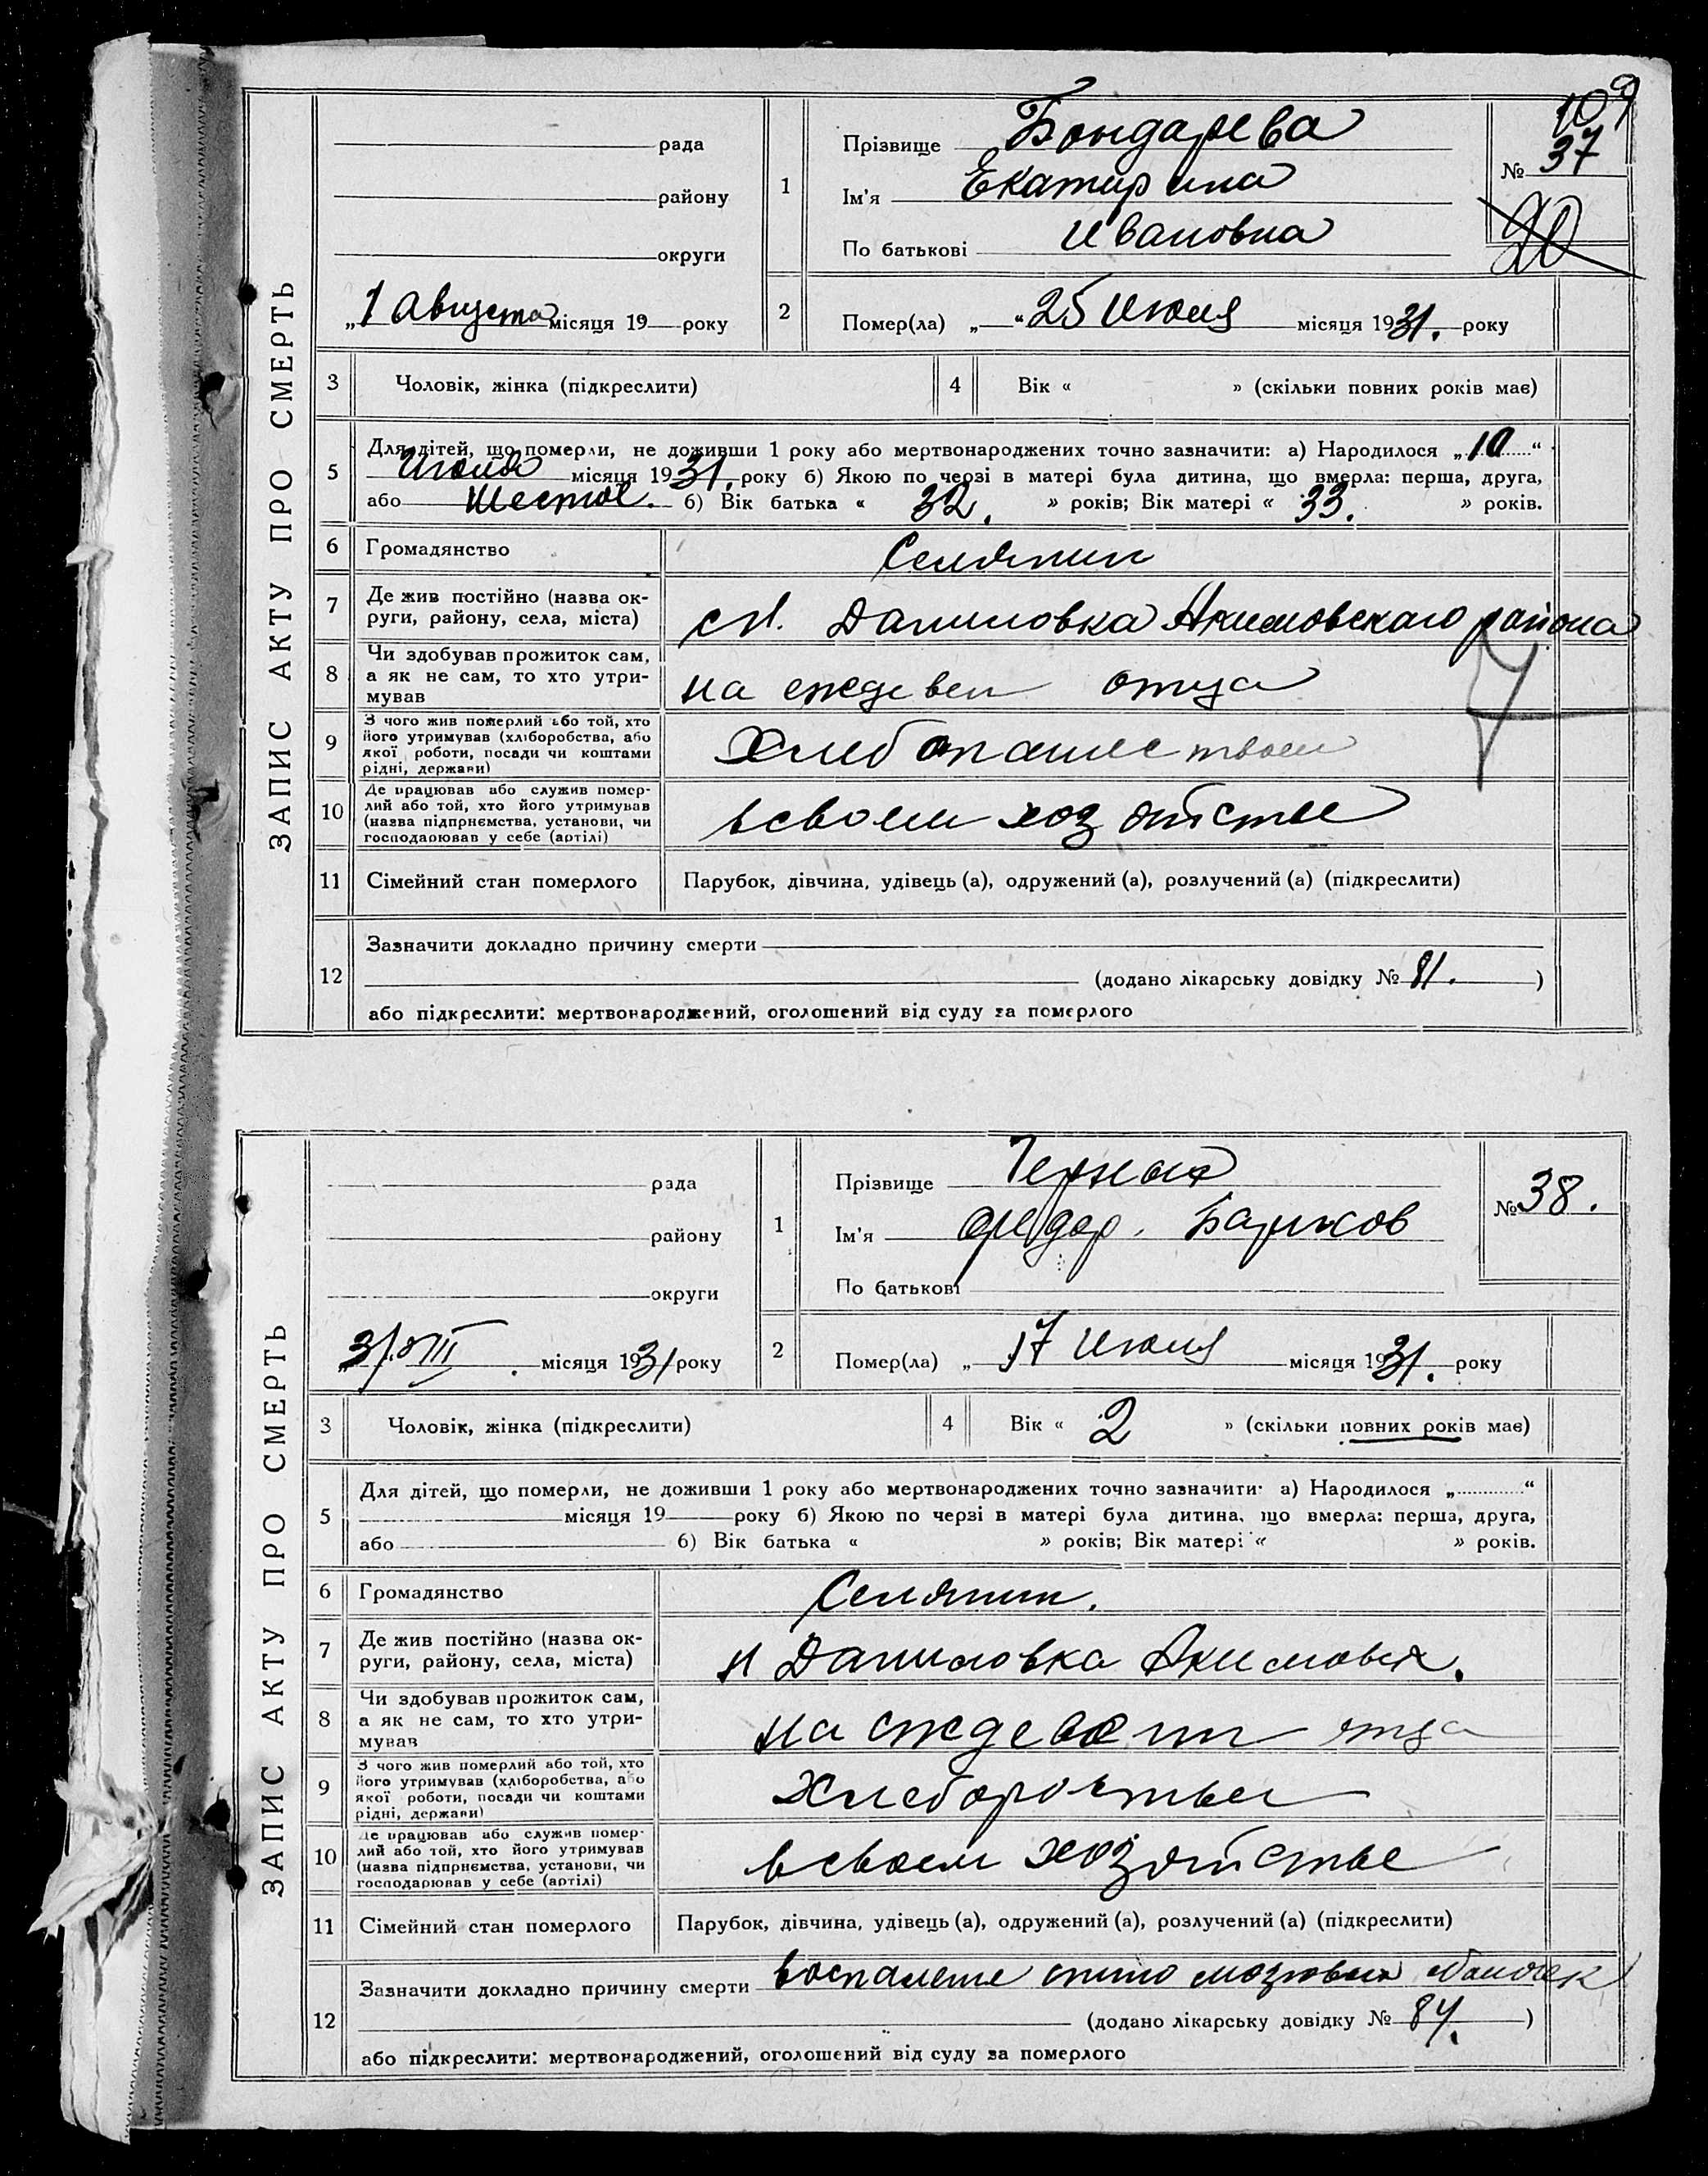 109
ЗАПИС АКТУ ПРО СМЕРТЬ
рада
району
округи
„1 Августа місяця 19 року
1
Прізвище Бондарева
Ім'я Екатирина
По батькові Ивановна
№ 37
20
2
Помер(ла) „ “ 25 Июля місяця 1931. року
3 Чоловік, жінка (підкреслити)
4 Вік « » (скільки повних років має)
5 Для дітей, що померли, не доживши 1 року або мертвонароджених точно зазначити: а) Народилося „10“
Июля місяця 1931. року б) Якою по черзі в матері була дитина, що вмерла: перша, друга,
або Шестое. б) Вік батька « 32. » років; Вік матері « 33. » років.
6 Громадянство Селянин
7 Де жив постійно (назва ок-
руги, району, села, міста)
сл. Даниловка Акимовскаго района
8 Чи здобував прожиток сам,
а як не сам, то хто утри-
мував
на иждевен отца
9 З чого жив померлий або той, хто
його утримував (хліборобства, або
якої роботи, посади чи коштами
рідні, держави)
Хлебопашеством
10 Де працював або служив помер-
лий або той, хто його утримував
(назва підприємства, установи, чи
господарював у себе (артілі)
всвоем хозяйстве
11 Сімейний стан померлого Парубок, дівчина, удівець (а), одружений (а), розлучений (а) (підкреслити)
12 Зазначити докладно причину смерти
(додано лікарську довідку № 81. )
або підкреслити: мертвонароджений, оголошений від суду за померлого
ЗАПИС АКТУ ПРО СМЕРТЬ
рада
району
округи
31/VIII. місяця 1931 року
1
Прізвище
Ім'я
По батькові
№ 38.
2
Помер(ла) „ 17 Июля місяця 1931. року
3 Чоловік, жінка (підкреслити)
4 Вік « 2 » (скільки повних років має)
5 Для дітей, що померли, не доживши 1 року або мертвонароджених точно зазначити: а) Народилося „ “
місяця 19 року б) Якою по черзі в матері була дитина, що вмерла: перша, друга,
або б) Вік батька « » років; Вік матері « » років.
6 Громадянство Селянин.
7 Де жив постійно (назва ок-
руги, району, села, міста)
Даниловка Акимовск.
8 Чи здобував прожиток сам,
а як не сам, то хто утри-
мував
на отца
9 З чого жив померлий або той, хто
його утримував (хліборобства, або
якої роботи, посади чи коштами
рідні, держави)
10 Де працював або служив помер-
лий або той, хто його утримував
(назва підприємства, установи, чи
господарював у себе (артілі)
всвоем хозяйстве
11 Сімейний стан померлого Парубок, дівчина, удівець (а), одружений (а), розлучений (а) (підкреслити)
12 Зазначити докладно причину смерти воспаление спино мозговых
(додано лікарську довідку № 84. )
або підкреслити: мертвонароджений, оголошений від суду за померлого